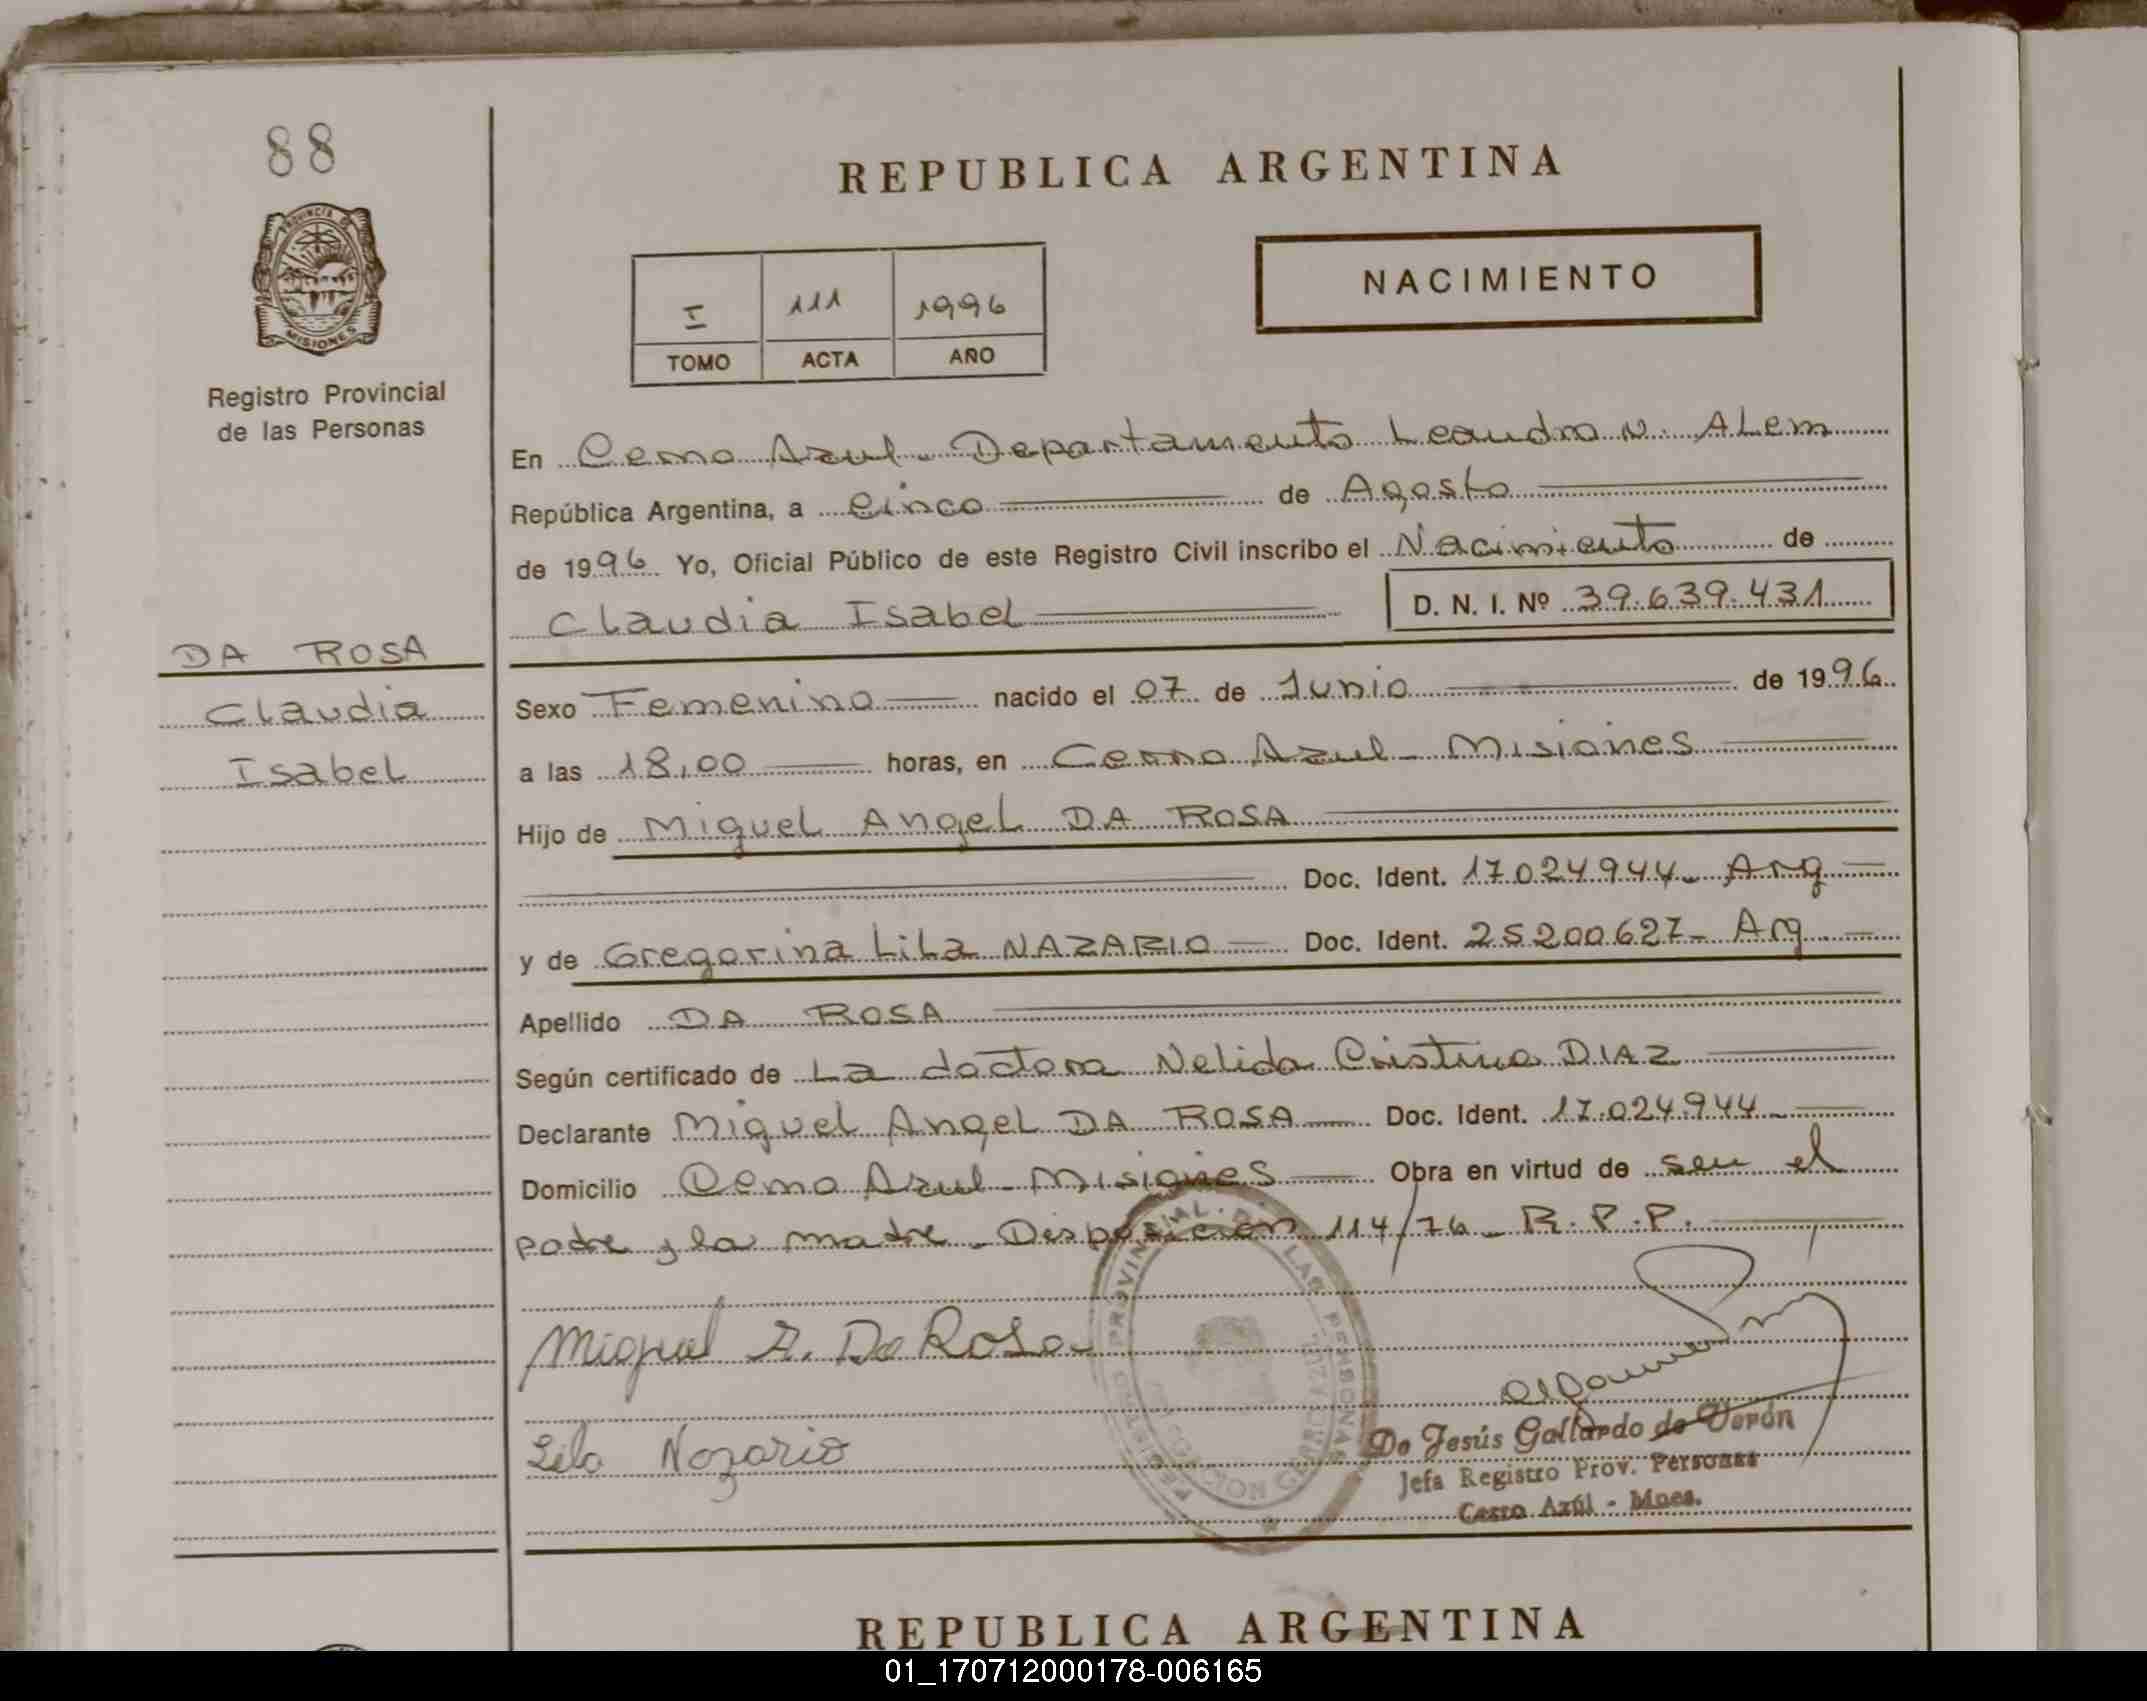 88
PROVINCIA DE
MISIONES
Registro Provincial
de las Personas
DA ROSA
Claudia
Isabel
REPUBLICA ARGENTINA
NACIMIENTO
I 111 1996
TOMO ACTA AÑO
En Cerro Azul - Departamento Leandro N. Alem
República Argentina, a Cinco de Agosto
de 1996 Yo, Oficial Público de este Registro Civil inscribo el Nacimiento de
Claudia Isabel D. N. I. Nº 39.639.431
Sexo Femenino nacido el 07 de Junio de 1996
a las 18,00 horas, en Cerro Azul - Misiones
Hijo de Miguel Angel DA ROSA
Doc. Ident. 17.024.944 - Arg
y de Gregorina Lila NAZARIO Doc. Ident. 25200627 - Arg
Apellido DA ROSA
Según certificado de La doctora Nelida Cristina DIAZ
Declarante Miguel Angel DA ROSA Doc. Ident. 17.024.944 -
Domicilio Cerro Azul - Misiones Obra en virtud de ser el
padre y la madre - Disposicion 114/76 - R.P.P.
Miguel A. Da Rosa
Lila Nazario
De Jesús Gallardo de Verón
Jefa Registro Prov. Personas
Cerro Azúl - Mnes.
REPUBLICA ARGENTINA
01_170712000178-006165